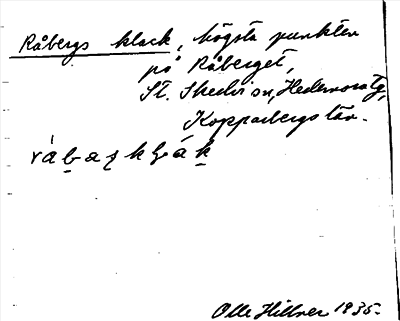 Råbergs klack, högsta punkten
på Råberget,
St. Skedvi sn, Hedemora tg,
Kopparbergs län.
Olle Hillner 1935.